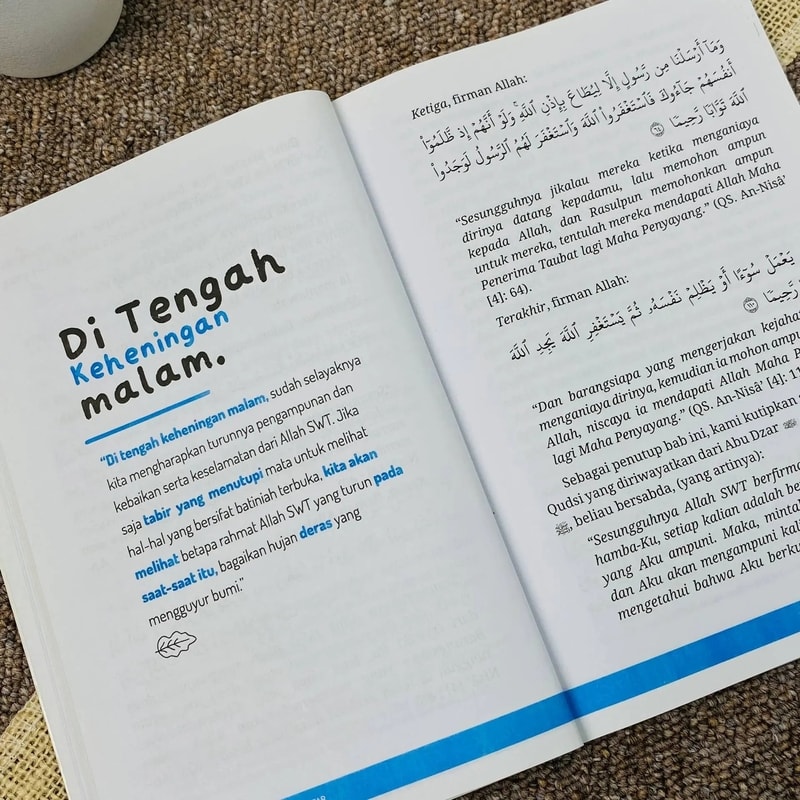 Di Tengah
Keheningan
malam.
“Di tengah keheningan malam, sudah selayaknya
kita mengharapkan turunnya pengampunan dan
kebaikan serta keselamatan dari Allah SWT. Jika
saja tabir yang menutupi mata untuk melihat
hal-hal yang bersifat batiniah terbuka, kita akan
melihat betapa rahmat Allah SWT yang turun pada
saat-saat itu, bagaikan hujan deras yang
mengguyur bumi.”
Ketiga, firman Allah:
وَمَآ أَرْسَلْنَا مِن رَّسُولٍ إِلَّا لِيُطَاعَ بِإِذْنِ ٱللَّهِ ۚ وَلَوْ أَنَّهُمْ إِذ ظَّلَمُوٓا۟
أَنفُسَهُمْ جَآءُوكَ فَٱسْتَغْفَرُوا۟ ٱللَّهَ وَٱسْتَغْفَرَ لَهُمُ ٱلرَّسُولُ لَوَجَدُوا۟
ٱللَّهَ تَوَّابًا رَّحِيمًا ٦٤
“Sesungguhnya jikalau mereka ketika menganiaya
dirinya datang kepadamu, lalu memohon ampun
kepada Allah, dan Rasulpun memohonkan ampun
untuk mereka, tentulah mereka mendapati Allah Maha
Penerima Taubat lagi Maha Penyayang.” (QS. An-Nisâ’
[4]: 64).
Terakhir, firman Allah:
يَعْمَلْ سُوٓءًا أَوْ يَظْلِمْ نَفْسَهُۥ ثُمَّ يَسْتَغْفِرِ ٱللَّهَ يَجِدِ ٱللَّهَ
رَّحِيمًا ١١٠
“Dan barangsiapa yang mengerjakan kejaha
menganiaya dirinya, kemudian ia mohon ampu
Allah, niscaya ia mendapati Allah Maha P
lagi Maha Penyayang.” (QS. An-Nisâ’ [4]: 11
Sebagai penutup bab ini, kami kutipkan
Qudsi yang diriwayatkan dari Abu Dzar
ﷺ, beliau bersabda, (yang artinya):
“Sesungguhnya Allah SWT berfirma
hamba-Ku, setiap kalian adalah be
yang Aku ampuni. Maka, minta
dan Aku akan mengampuni kali
mengetahui bahwa Aku berku